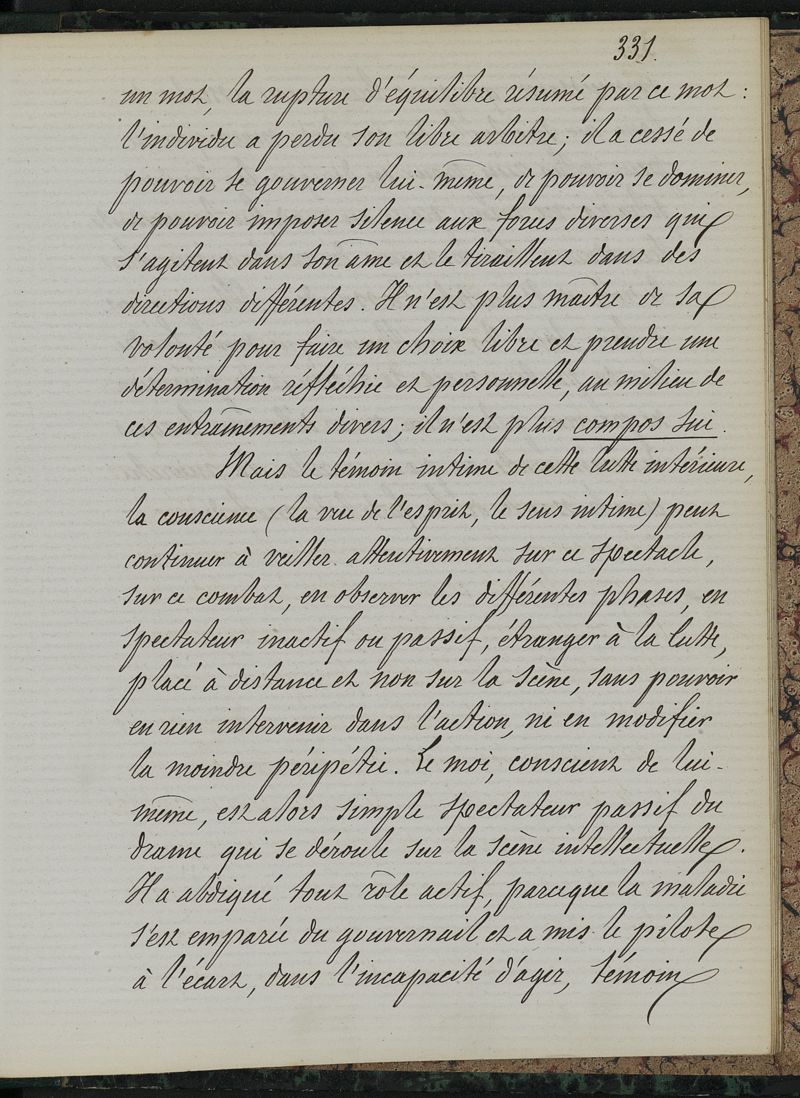 331.
un mot, la rupture d'équilibre résumé par ce mot :
l'individu a perdu son libre arbitre ; il a cessé de
pouvoir se gouverner lui-même, de pouvoir se dominer,
de pouvoir imposer silence aux forces diverses qui
s'agitent dans son âme et le tiraillent dans des
directions différentes. Il n'est plus maître de sa
volonté pour faire un choix libre et prendre une
détermination réfléchie et personnelle, au milieu de
ces entraînements divers ; il n'est plus compos sui.
Mais le témoin intime de cette lutte intérieure,
la conscience (la vue de l'esprit, le sens intime) peut
continuer à veiller attentivement sur ce spectacle,
sur ce combat, en observer les différentes phases, en
spectateur inactif ou passif, étranger à la lutte,
placé à distance et non sur la scène, sans pouvoir
en rien intervenir dans l'action, ni en modifier
la moindre péripétie. Le moi, conscient de lui-
même, est alors simple spectateur passif du
drame qui se déroule sur la scène intellectuelle.
Il a abdiqué tout rôle actif, parceque la maladie
s'est emparée du gouvernail et a mis le pilote
à l'écart, dans l'incapacité d'agir, témoin